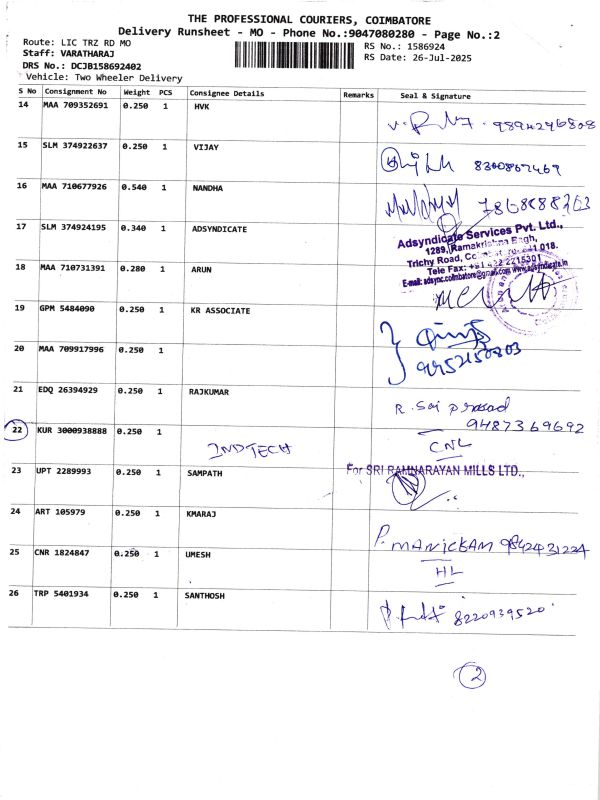 THE PROFESSIONAL COURIERS, COIMBATORE
Delivery Runsheet - MO - Phone No.:9047080280 - Page No.:2
Route: LIC TRZ RD MO
RS No.: 1586924
Staff: VARATHARAJ
RS Date: 26-Jul-2025
DRS No.: DCJB158692402
Vehicle: Two Wheeler Delivery
S No Consignment No Weight PCS Consignee Details Remarks Seal & Signature
14 MAA 709352691 0.250 1 HVK
9894296808
15 SLM 374922637 0.250 1 VIJAY
8300867469
16 MAA 710677926 0.540 1 NANDHA
17 SLM 374924195 0.340 1 ADSYNDICATE
Adsyndicate Services Pvt. Ltd.,
1289, Ramakrishna Bagh,
Trichy Road, Coimbatore 641 018.
Tele Fax: +91 422 2215301
E-mail: adsync.coimbatore@gmail.com www.adsyndicate.in
18 MAA 710731391 0.280 1 ARUN
19 GPM 5484090 0.250 1 KR ASSOCIATE
20 MAA 709917996 0.250 1
9952150803
21 EDQ 26394929 0.250 1 RAJKUMAR
R. Sai prasad
9487369692
22 KUR 3000938888 0.250 1 INDTECH
CNL
23 UPT 2289993 0.250 1 SAMPATH
For SRI RAMNARAYAN MILLS LTD.,
24 ART 105979 0.250 1 KMARAJ
P. MANICKAM 9842431224
25 CNR 1824847 0.250 1 UMESH
HL
26 TRP 5401934 0.250 1 SANTHOSH
8220939520
2